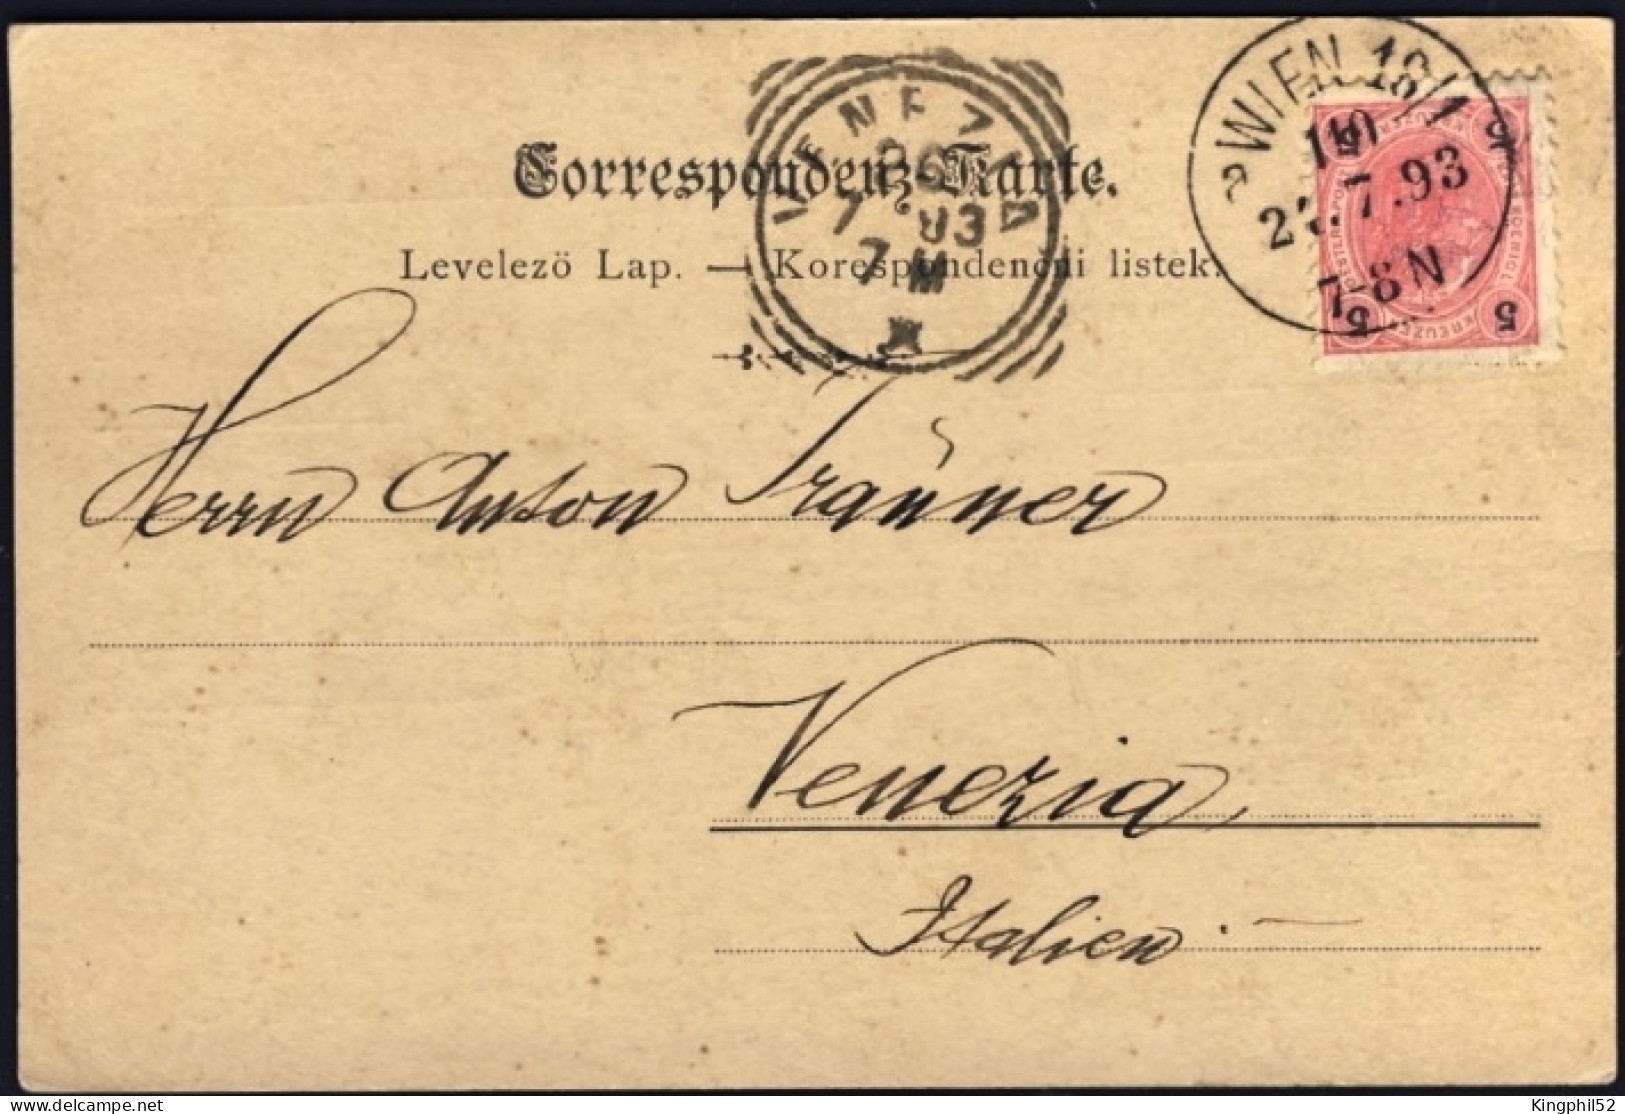 WIEN 18/1
110
7.93
7-8 N
VENEZIA
26
7 93
7 M
Correspondenz-Karte.
Levelező Lap. — Korespondenční listek.
5 5 5 5
KREUZER
Herrn Anton Tränner
Venezia,
Italien.
Kingphil52
delcampe.net